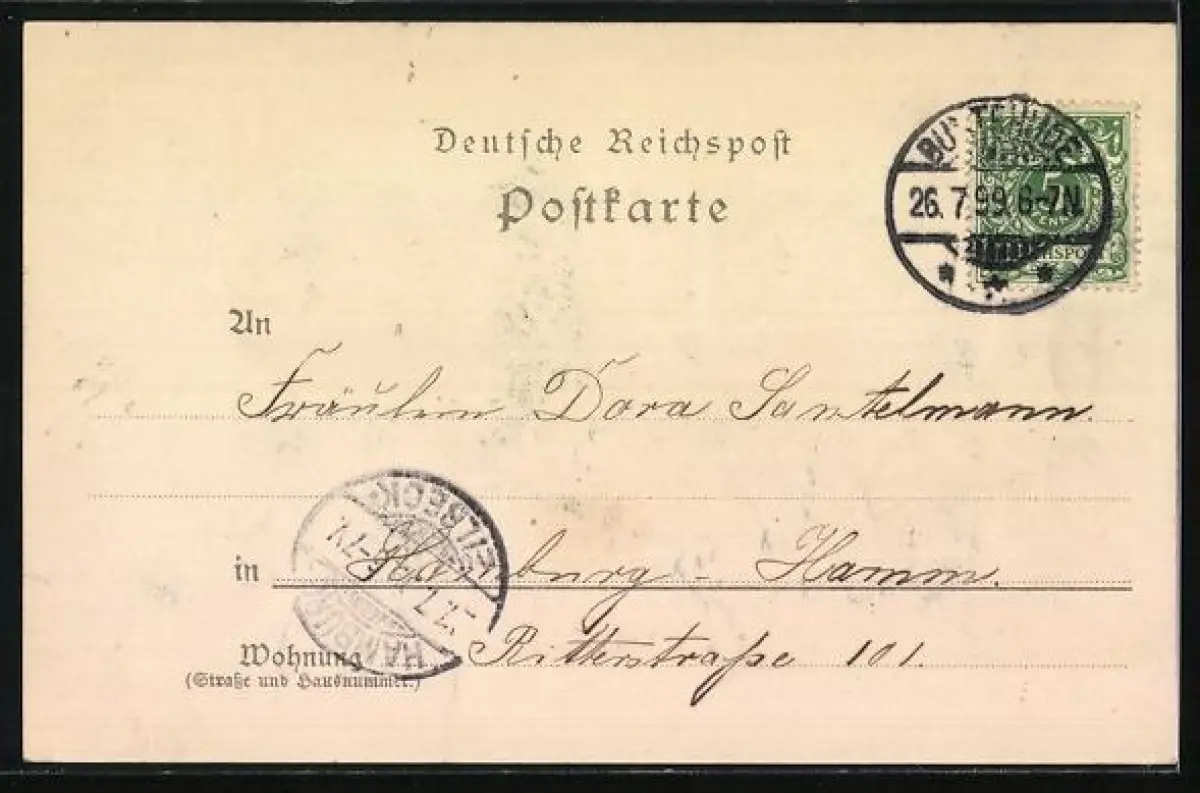 Deutsche Reichspost
Postkarte
BUXTEHUDE
26. 7. 99. 6-7N.
5
REICHSPOST
An
Fräulein Dora Santelmann.
EILBECK
HAMBURG
in Hamburg - Hamm.
Wohnung Ritterstraße 101.
(Straße und Hausnummer.)